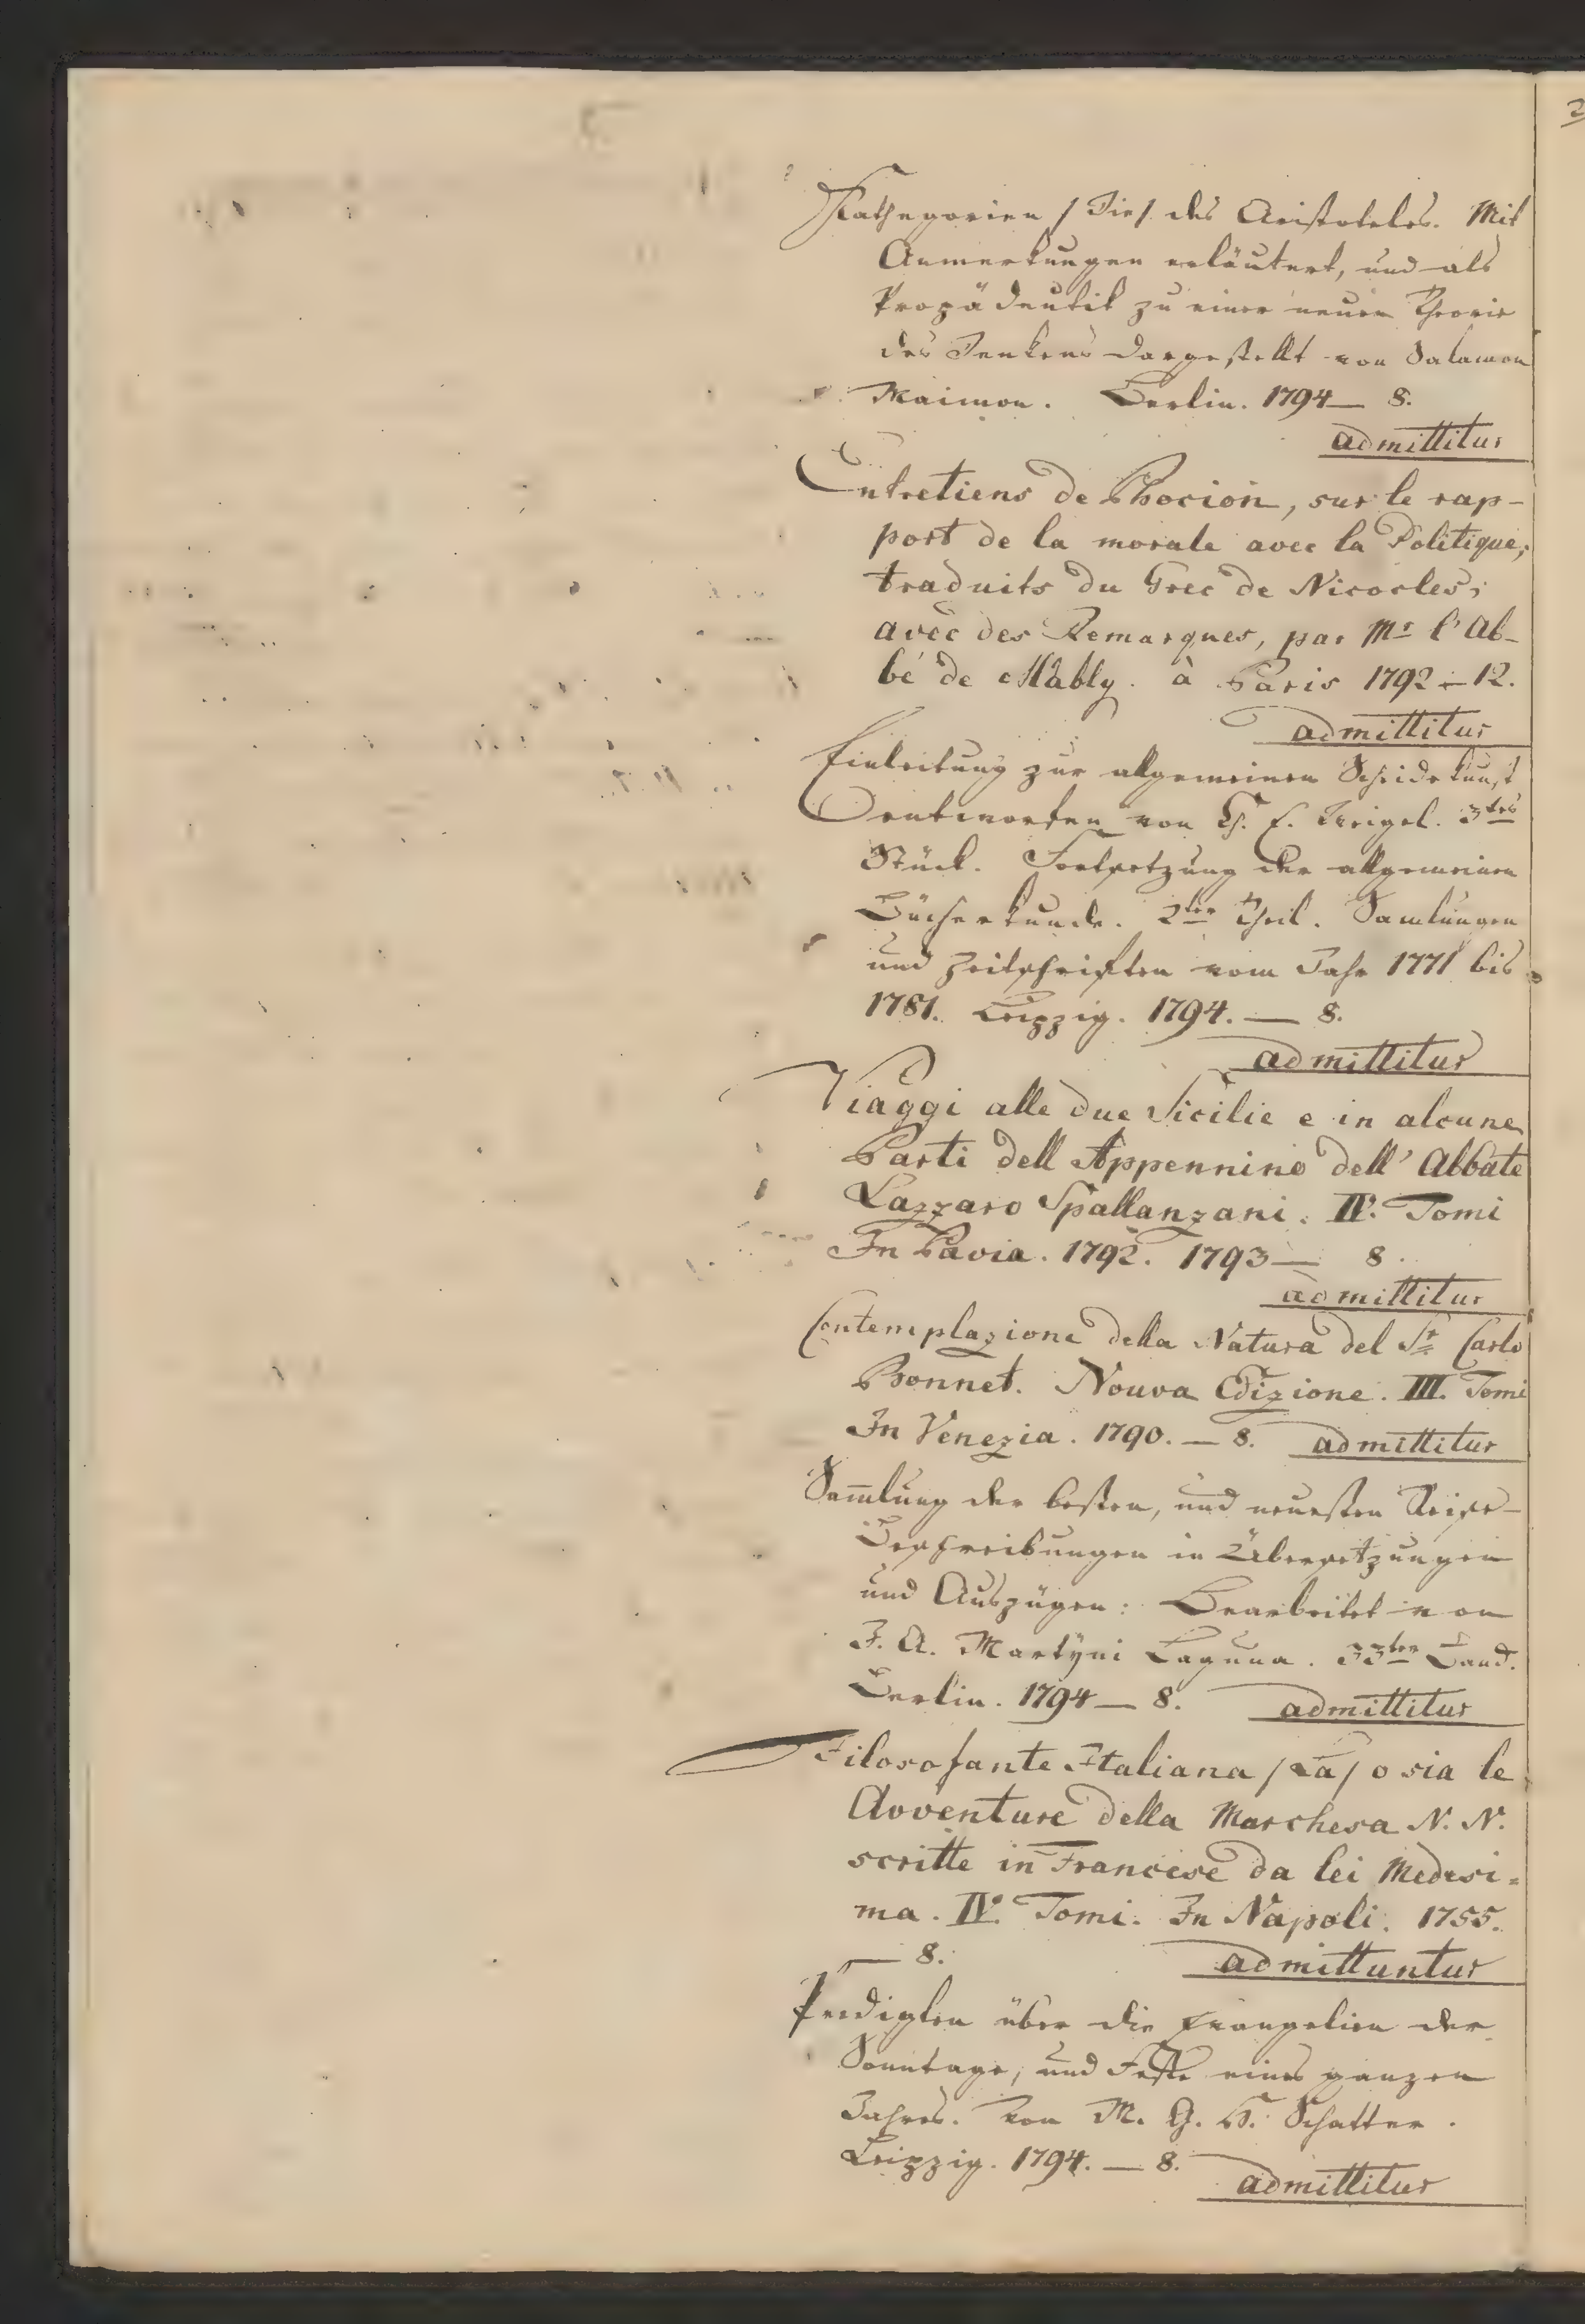 Kathegorien /Die/ des Aristoteles. Mit
Anmerkungen erläutert, und als
Propädeutik zu einer neuen Theorie
des Denkens dargestellt von Salamon
Maimon. Berlin. 1794 — 8.
admittitur
Entretiens de Phocion, sur le rap-
port de la morale avec la Politique;
traduits du Grec de Nicocles;
avec des Remarques, par Mr l'Ab-
bé de Mably. à Paris 1792 — 12.
admittitur
Einleitung zur allgemeinen Scheidekunst
entworfen von Ch. E. Weigel. 3tes
Stück. Fortsetzung der allgemeinen
Bücherkunde. 2ter Theil. Samlungen
und Zeitschriften vom Jahr 1771 bis
1781. Leipzig. 1794. — 8.
admittitur
Viaggi alle due Sicilie e in alcune
Parti dell Appennino dell' Abbate
Lazzaro Spallanzani. IV. Tomi
In Pavia. 1792. 1793 — 8.
admittitur
Contemplazione della Natura del Sr Carlo
Bonnet. Nouva Edizione. III. Tomi
In Venezia. 1790. — 8. admittitur
Sam̄lung der besten, und neuesten Reise-
Beschreibungen in Übersetzungen
und Auszügen: Bearbeitet von
J. A. Martÿni Laguna. 33ter Band.
Berlin. 1794 — 8. admittitur
Filosofante Italiana /La/ o sia le
Avventure della Marchesa N. N.
scritte in Francese da lei Medesi=
ma. IV. Tomi. In Napoli. 1755.
— 8. admittuntur
Predigten über die Evangelien der
Sonntage, und Feste eines ganzen
Jahres. Von M. G. H. Schatter.
Leipzig. 1794. — 8.
admittitur
2